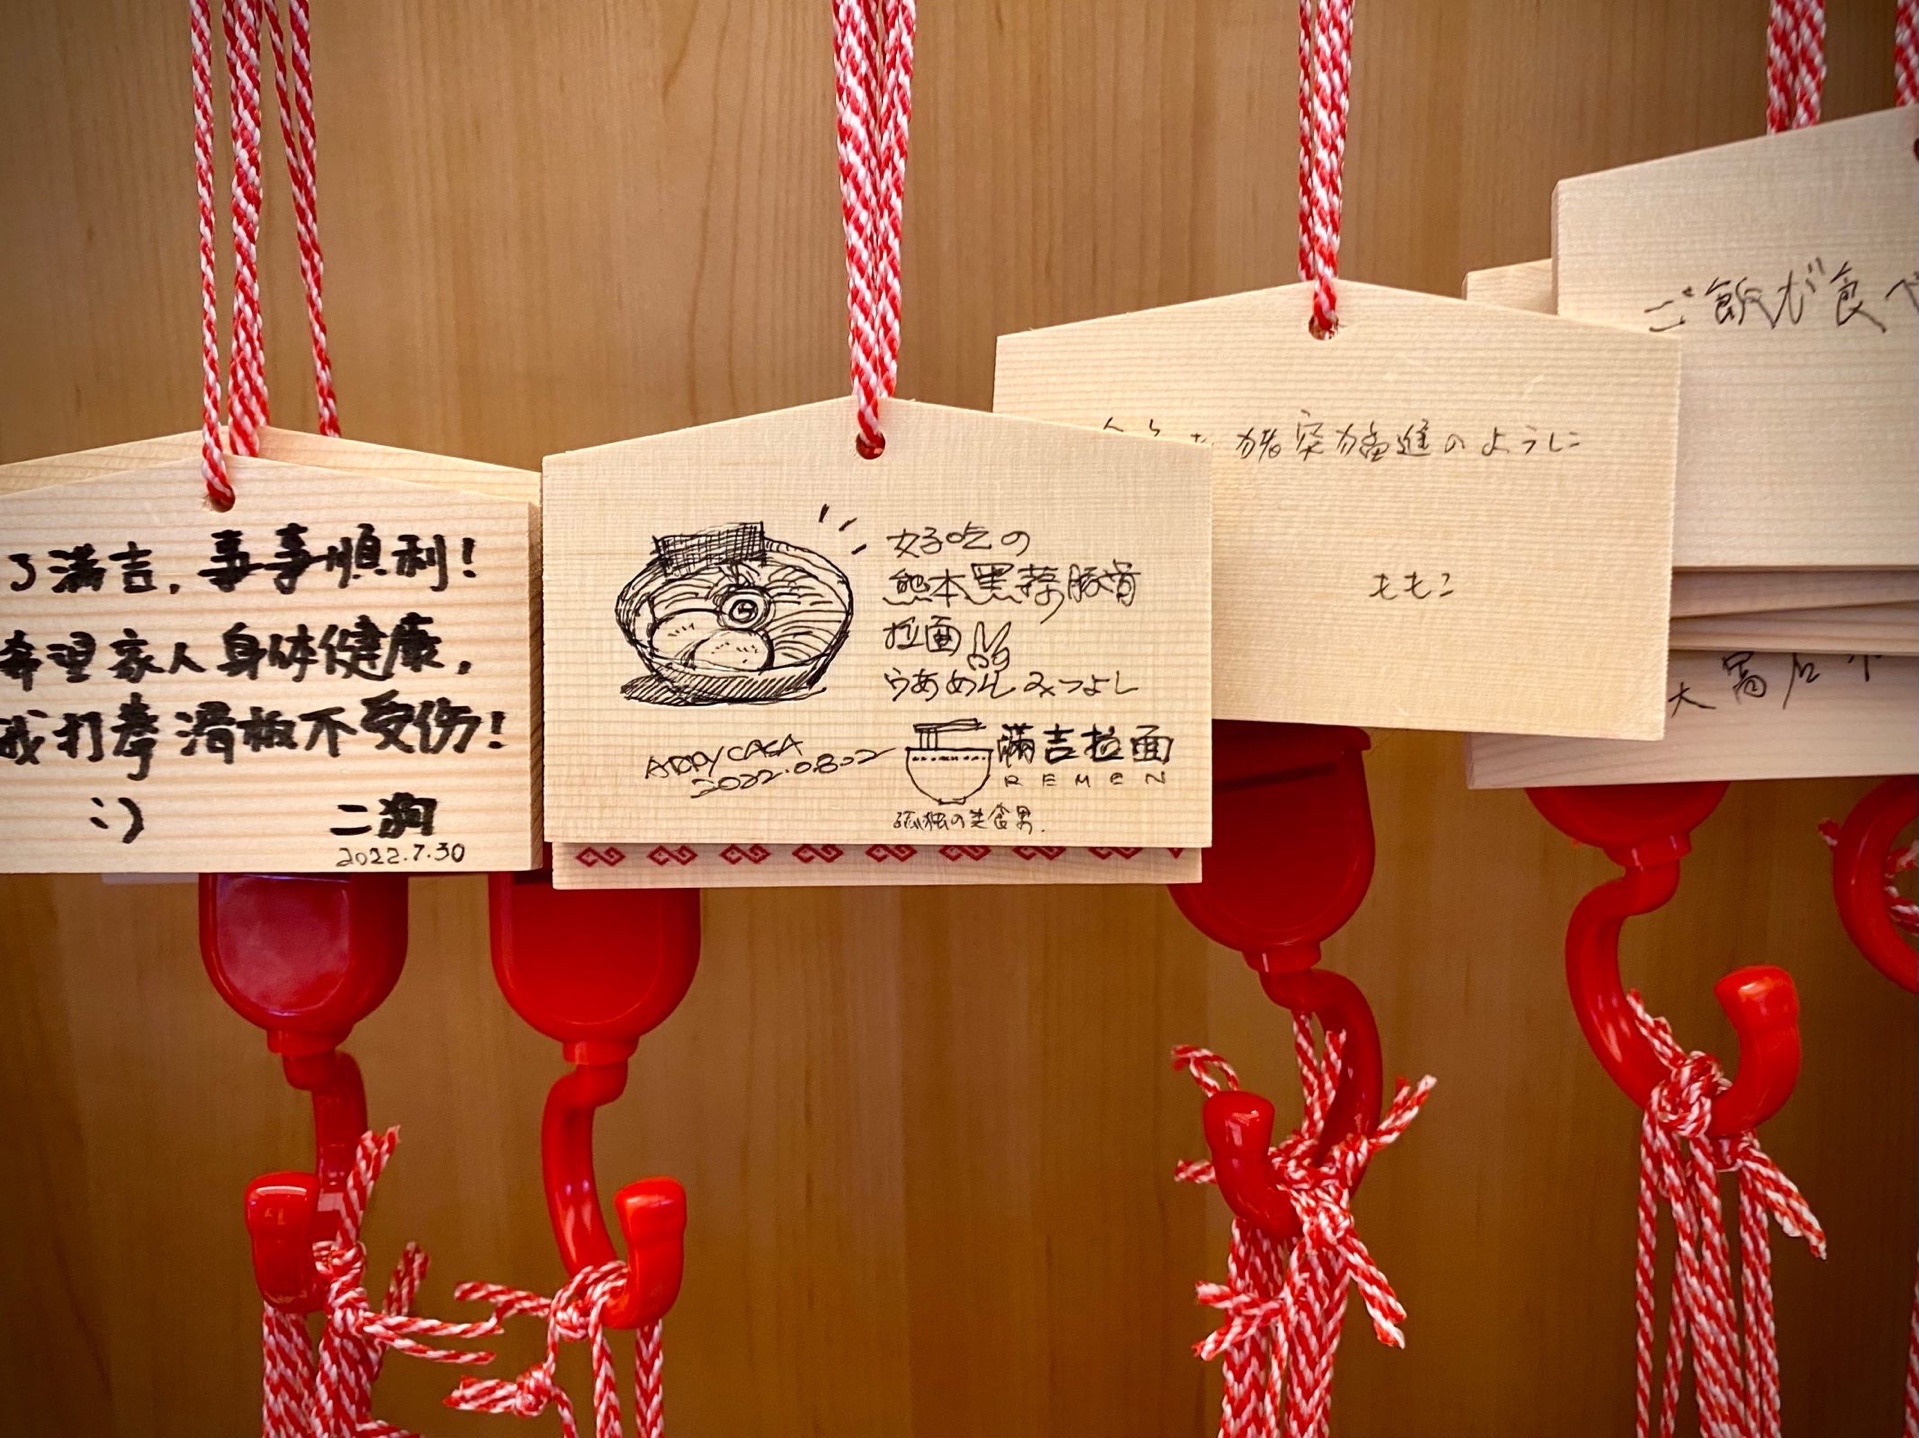 了满吉，事事顺利！
希望家人身体健康，
我打拳滑板不受伤！
:) 二狗
2022.7.30
好吃の
熊本黑蒜豚骨
拉面
らあめん みつよし
2022.08.02
满吉拉面
REMEN
孤独の美食男.
猪突猛進のように
ももこ
ご飯が食べ